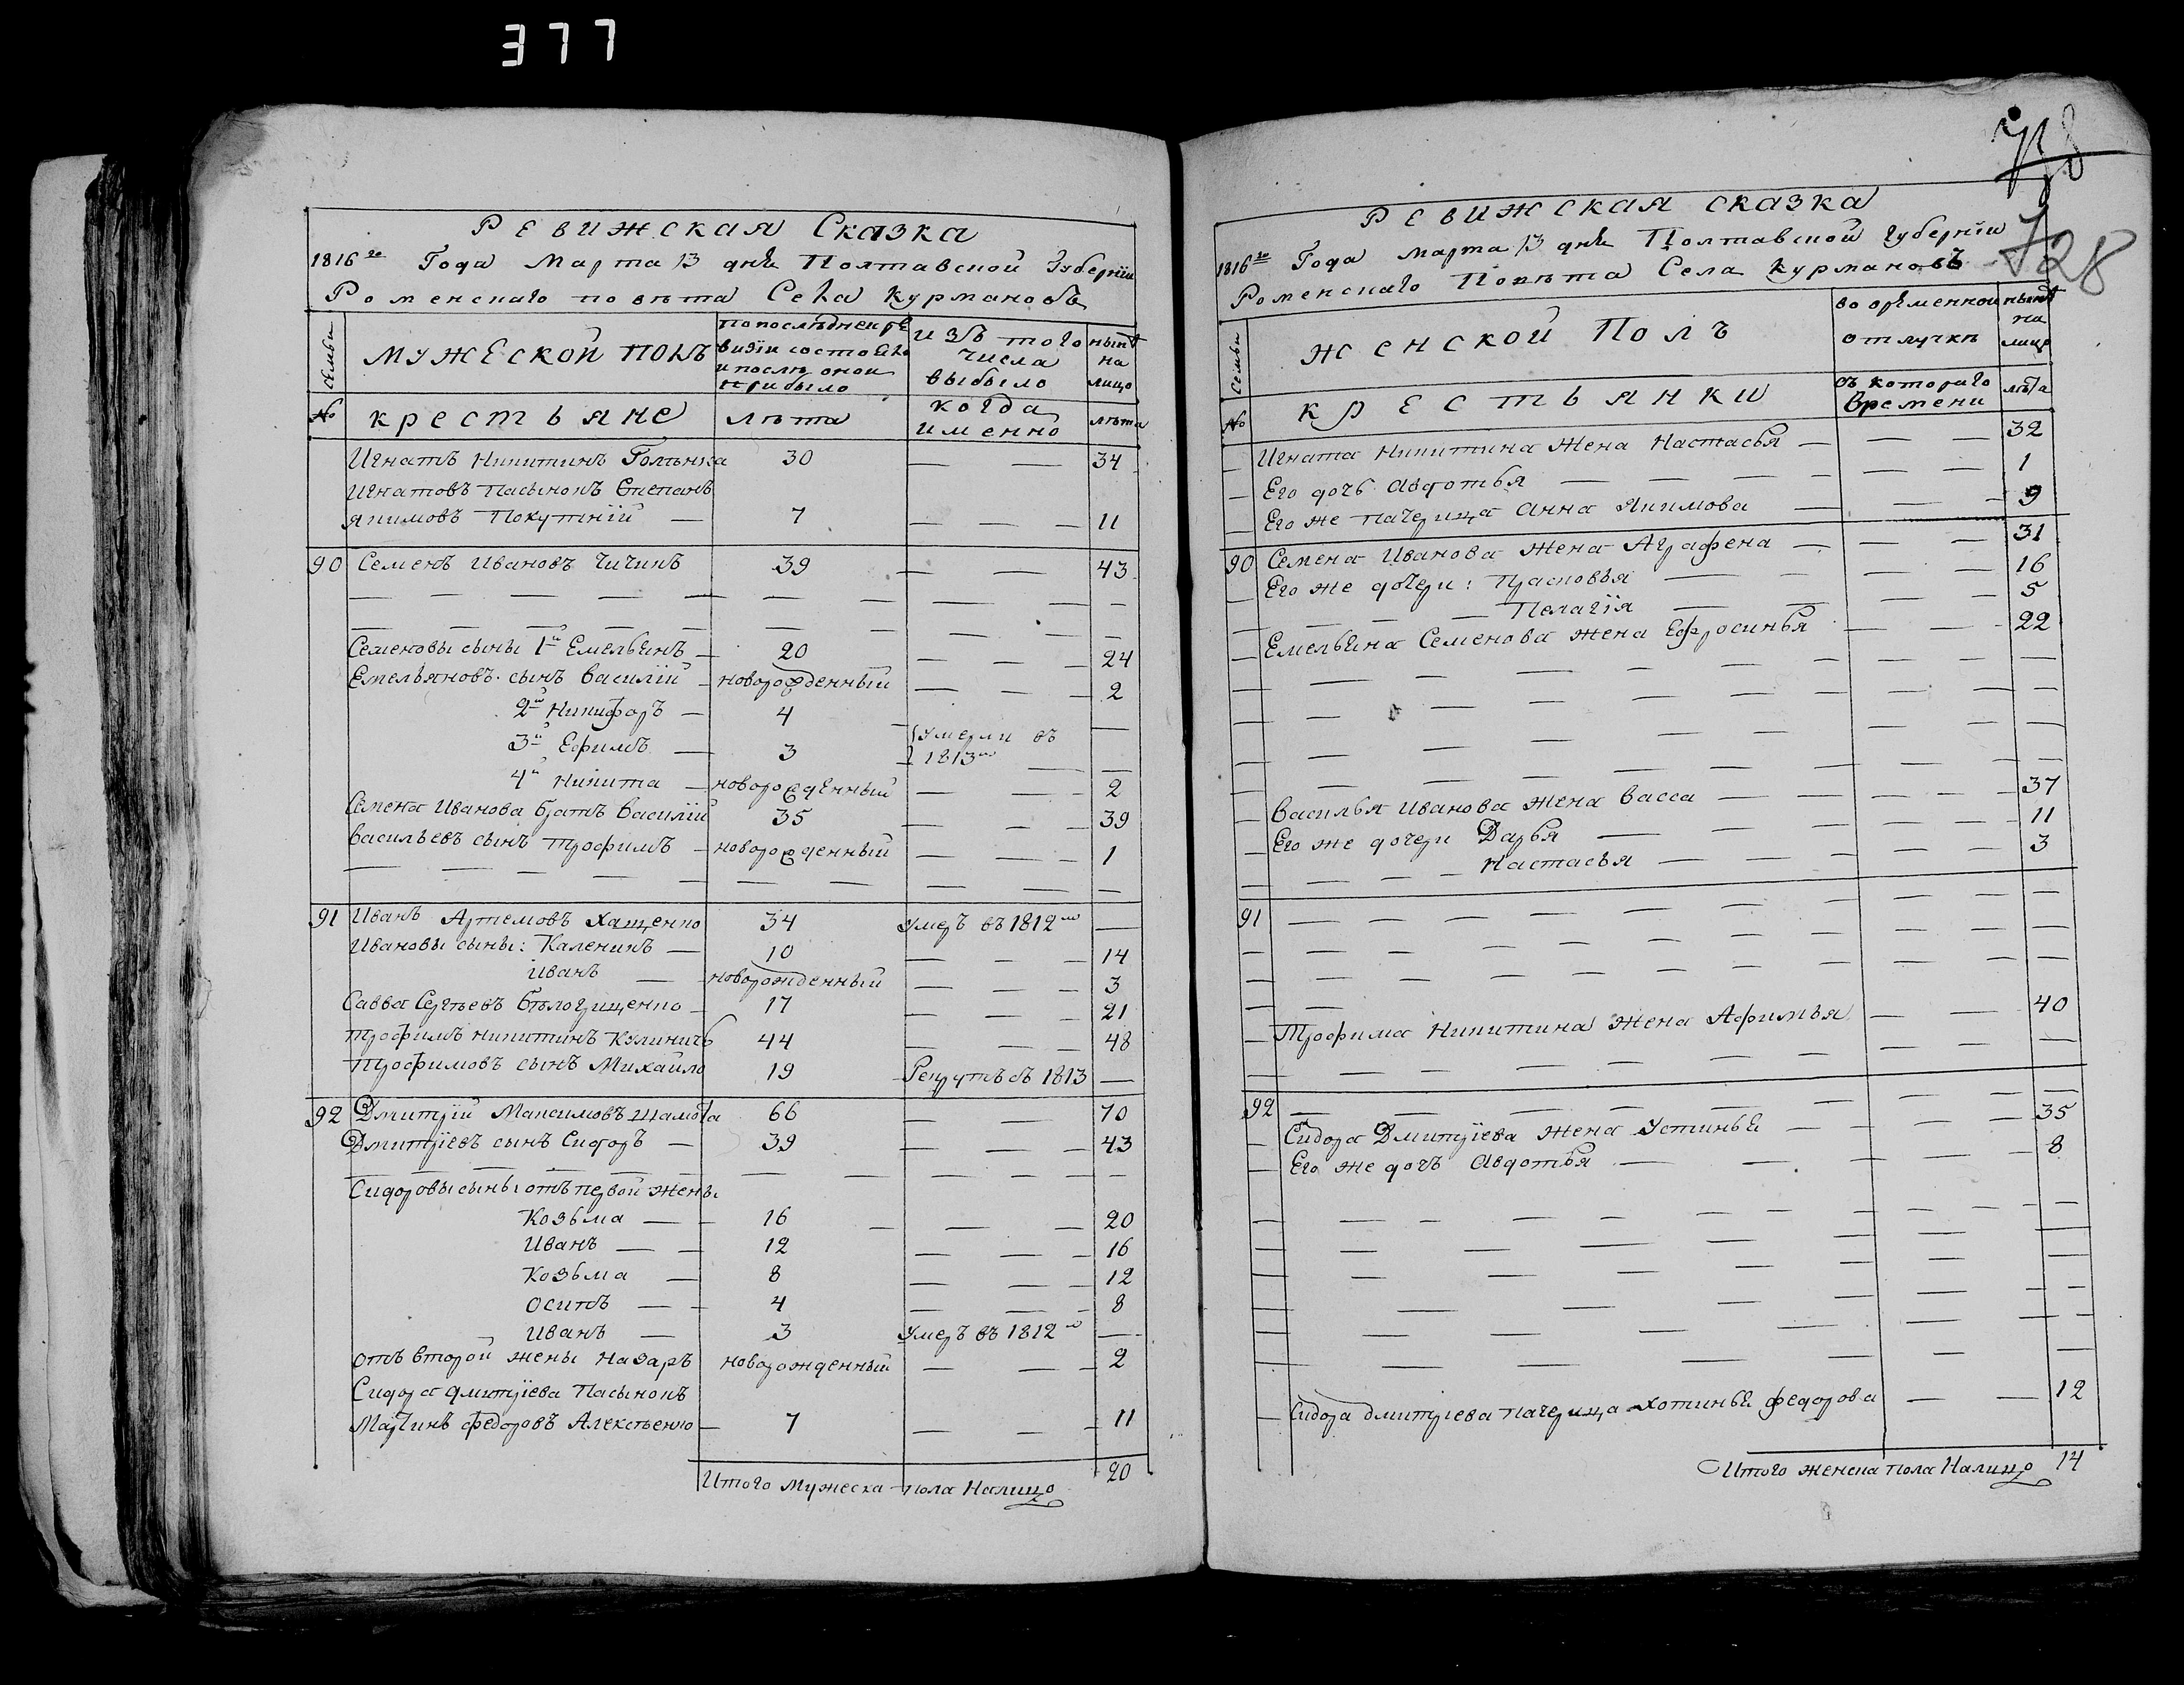 377
Ревижская Сказка
1816го Года Марта 13 дня Полтавской Губернїи
Роменскаго повѣта Села Курмановъ
Семьи
мужеской полъ
по последней ре
визїи состояло
и послѣ оной
прибыло
изъ того
числа
выбыло
нынѣ
на
лицо
№
крестьяне
лѣта
когда
именно
лѣта
Игнатъ Никитинъ Голынка 30 — — 34
Игнатовъ Пасынокъ Степанъ
Якимовъ Покутнїй — 7 — — — 11
90 Семенъ Ивановъ Чичикъ 39 — — 43
Семеновы сыны 1й Емельянъ — 20 — — — 24
Емельяновъ сынъ Василїй — новорожденный — — — 2
2й Никифоръ — 4 —
3й Ефимъ — 3 Умерли въ 1813м —
4й Никита — новорожденный — — 2
Семена Иванова братъ Василїй 35 — — — 39
Васильевъ сынъ Трофимъ — новорожденный — — — 1
91 Иванъ Артемовъ Хащенко 34 Умеръ въ 1812м —
Ивановы сыны: Каленикъ — 10 — — — 14
Иванъ — новорожденный — — — 3
Савва Сергѣевъ Бѣлогрищенко — 17 — — — 21
Трофимъ Никитинъ Куличъ 44 — — — 48
Трофимовъ сынъ Михайло 19 Рекрутъ въ 1813 —
92 Дмитрїй Максимовъ Шамота 66 — — 70
Дмитрїевъ сынъ Сидоръ — 39 — — — 43
Сидоровы сыны отъ первой жены
Козьма — — 16 — — — 20
Иванъ — — 12 — — — 16
Козьма — 8 — — — 12
Осипъ — — 4 — — — 8
Иванъ — 3 Умеръ въ 1812м —
отъ второй жены Назаръ новорожденный — — — 2
Сидора Дмитрїева Пасынокъ
Мартинъ Федоровъ Алексѣенко — 7 — — — 11
Итого мужеска пола Налицо 20
728
Ревижская сказка
1816го Года марта 13 дня Полтавской губернїи
Роменскаго Повѣта Села Курмановъ
Семьи
женской Полъ
во временной
отлучкѣ
нынѣ
на
лицо
№
крестьянки
съ котораго
времени
лѣта
— Игната Никитина Жена Настасья — — — 32
— Его дочь Авдотья — — — 1
— Его же падчерица Анна Якимова — — 9
90 Семена Иванова жена Аграфена — — — 31
— Его же дочери: Прасковья — — — 16
Пелагїя — — — 5
— Емельяна Семенова жена Ефросинья — — 22
— Василья Иванова жена Васса — — — 37
— Его же дочери Дарья — — — 11
Настасья — — — 3
91
— Трофима Никитина Жена Афимья — — 40
92
— Сидора Дмитрїева жена Устинья — — 35
— Его же дочь Авдотья — — — 8
— Сидора Дмитрїева падчерица Хотинья Федорова — — 12
Итого женска пола Налицо 14